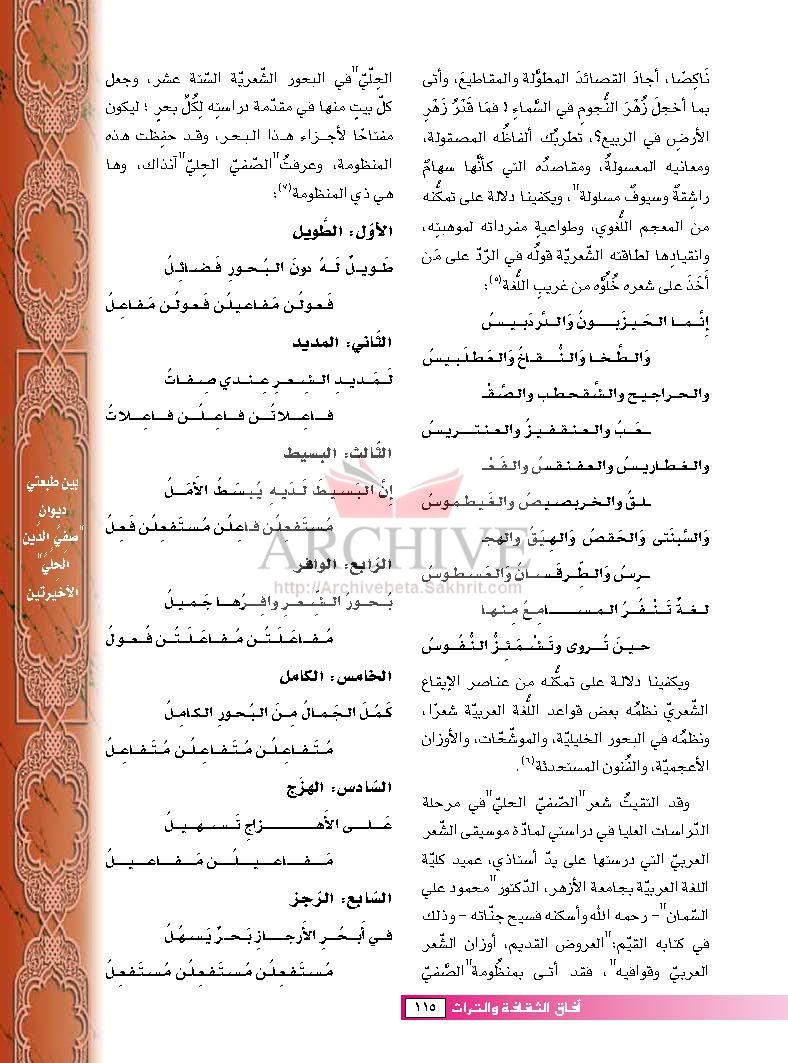 نَاكِصًا، أجادَ القصائدَ المطوَّلة والمقاطيعَ، وأتى
بما أخجلَ زُهْرَ النُّجومِ في السَّماءِ ؛ فمَا قَدْرُ زَهْرِ
الأرضِ في الربيعِ؟، تطربُك ألفاظُه المصقولة،
ومعانيه المعسولةُ، ومقاصدُه التي كأنَّها سهامٌ
راشقةٌ وسيوفٌ مسلولة"، ويكفينا دلالة على تمكُّنه
من المعجم اللُّغوي، وطواعيةِ مفرداته لموهبتِه،
وانقيادِها لطاقته الشِّعريّة قولُه في الرّدِّ على مَن
أَخَذَ على شعره خُلُوَّه من غريبِ اللُّغة(٥):
إنَّمـا الحَيـزَبـــونُ وَالـدَّردَبيـسُ
وَالـطَّـخـا وَالـنُّــقـاخُ وَالعَـطلَـبيـسُ
والحراجيج والشَّقحطب والصَّقْـ
ـعَـبُ والعـنـقـفيـزُ والعنتـريـسُ
والغطاريسُ والعفنقسُ والعَفْـ
ـلـقُ والخـربصيصُ والعَيطموسُ
وَالسَّبنْتى وَالحَقصُ وَالهِيَقُ والهِجـ
ـرِسُ والطِّـرفَسـانُ وَالعَسَطوسُ
لغـةٌ تَـنْـفُـرُ المـســامِـعُ مِنـهـا
حيـنَ تُـروى وتَـشْـمَئِـزُّ النُّفُـوسُ
ويكفينا دلالة على تمكُّنه من عناصر الإيقاع
الشّعريّ نظمُه بعض قواعد اللّغة العربيّة شعرًا،
ونظمُه في البحور الخليليّة، والموشّحات، والأوزان
الأعجميّة، والفُنون المستحدثة(٦).
وقد التقيتُ شعر "الصّفيّ الحليّ" في مرحلة
الدّراسات العليا في دراستي لمادّة موسيقى الشّعر
العربيّ التي درستها على يدّ أستاذي، عميد كليّة
اللغة العربيّة بجامعة الأزهر، الدّكتور "محمود علي
السّمان" - رحمه الله وأسكنه فسيح جنّاته - وذلك
في كتابه القيّم: "العروض القديم، أوزان الشّعر
العربيّ وقوافيه"، فقد أتـى بمنظُومة "الصّفيّ
الحِلّيّ" في البحور الشّعريّة السّتة عشر، وجعل
كلّ بيتٍ منها في مقدّمة دراسته لِكُلّ بحرٍ ؛ ليكون
مفتاحًا لأجـزاء هـذا البحـر، وقـد حفِظت هذه
المنظومة، وعرفتُ "الصّفيّ الحِليّ" آنذاك، وها
هي ذي المنظومة(٧):
الأوّل: الطَّويل
طَـويـلٌ لَـهُ دونَ البُـحـورِ فَـضـائِـلُ
فَـعـولُـن مَـفـاعيلُـن فَعولُـن مَـفـاعِـلُ
الثّاني: المديد
لَـمَـديـدِ الـشِّـعـرِ عِـنـدي صِـفـاتُ
فــاعِـلاتُــن فــاعِـلُـن فــاعِـلاتُ
الثّالث: البسيط
إنَّ البَسـيـطَ لَدَيـهِ يُبـسَـطُ الأَمَـلُ
مُـستَفعِلُن فـاعِلُـن مُستَفعِلُـن فَعِلُ
الرّابع: الوافر
بُـحـورُ الشِّـعـرِ وافِـرُهـا جَـميـلُ
مُـفـاعَلَـتُـن مُـفـاعَـلَـتُـن فَعـولُ
الخامس: الكامل
كَمُـلَ الجَـمالُ مِـنَ البُـحورِ الكامِـلُ
مُـتَـفـاعِلُـن مُـتَـفـاعِلُـن مُـتَـفـاعِـلُ
السّادس: الهزَج
عَــلـى الأَهـــــزاجِ تَــســهـيــلُ
مَــفــاعــيــلُــن مَــفــاعــيــلُ
السّابع: الرّجز
فـي أَبـحُـرِ الأَرجـازِ بَـحـرٌ يَـسـهُـلُ
مُستَفعِلُـن مُستَفعِلُـن مُستَفعِـلُ
بين طبعتي
ديوان
"صفيِّ الدِّين
الحِلِّيِّ"
الأخيرتين
ARCHIVE
http://Archivebeta.Sakhrit.com
آفاق الثقافة والتراث ١١٥